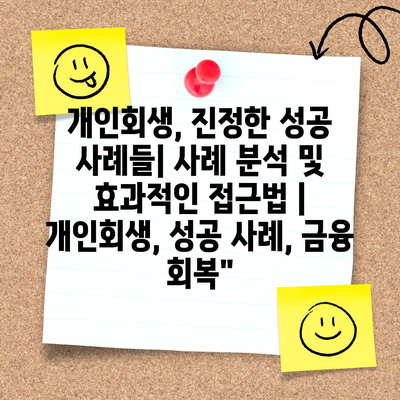 개인회생, 진정한 성공
사례들| 사례 분석 및
효과적인 접근법 |
개인회생, 성공 사례, 금융
회복"